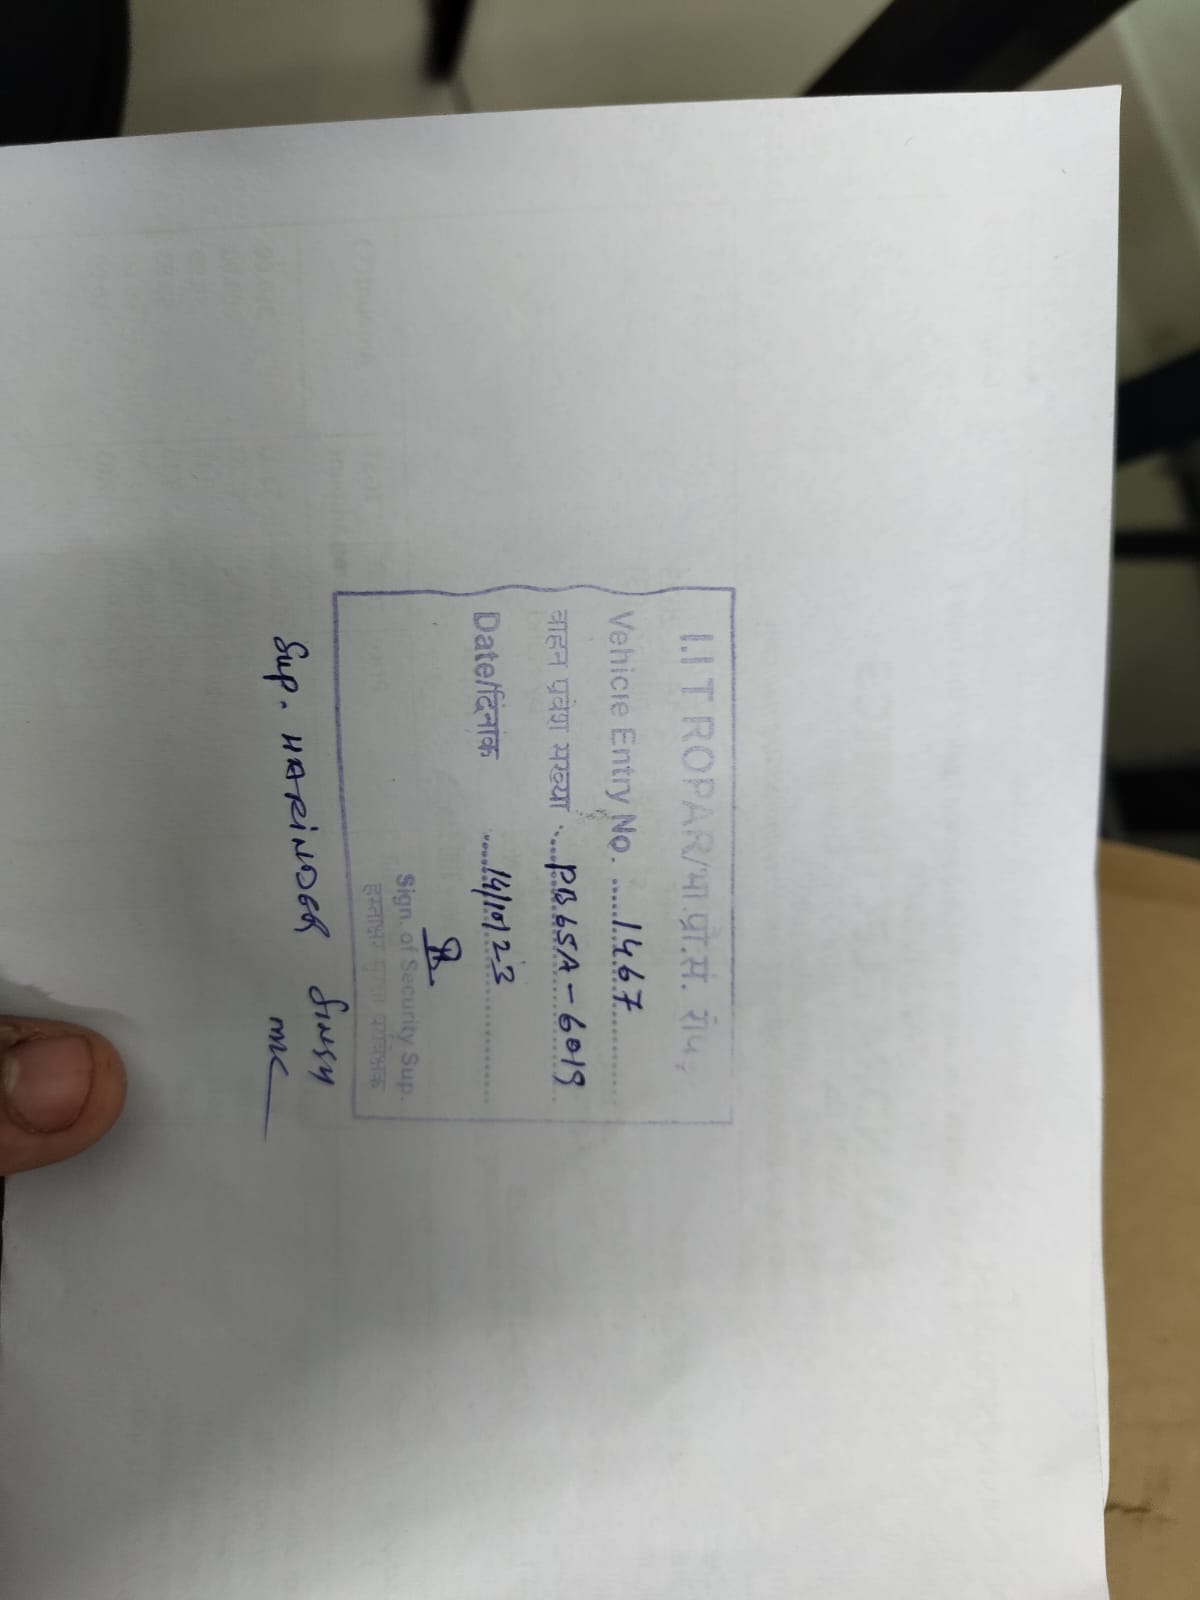 I.I T ROPAR/भा.प्रौ.सं. रोपड़
Vehicle Entry No. ......1467............
वाहन प्रवेश संख्या .....PB65A-6019..
Date/दिनांक ......14/10/23..............
Sign. of Security Sup.
हस्ताक्षर सुरक्षा पर्यवेक्षक
Sup. HARINDER SINGH